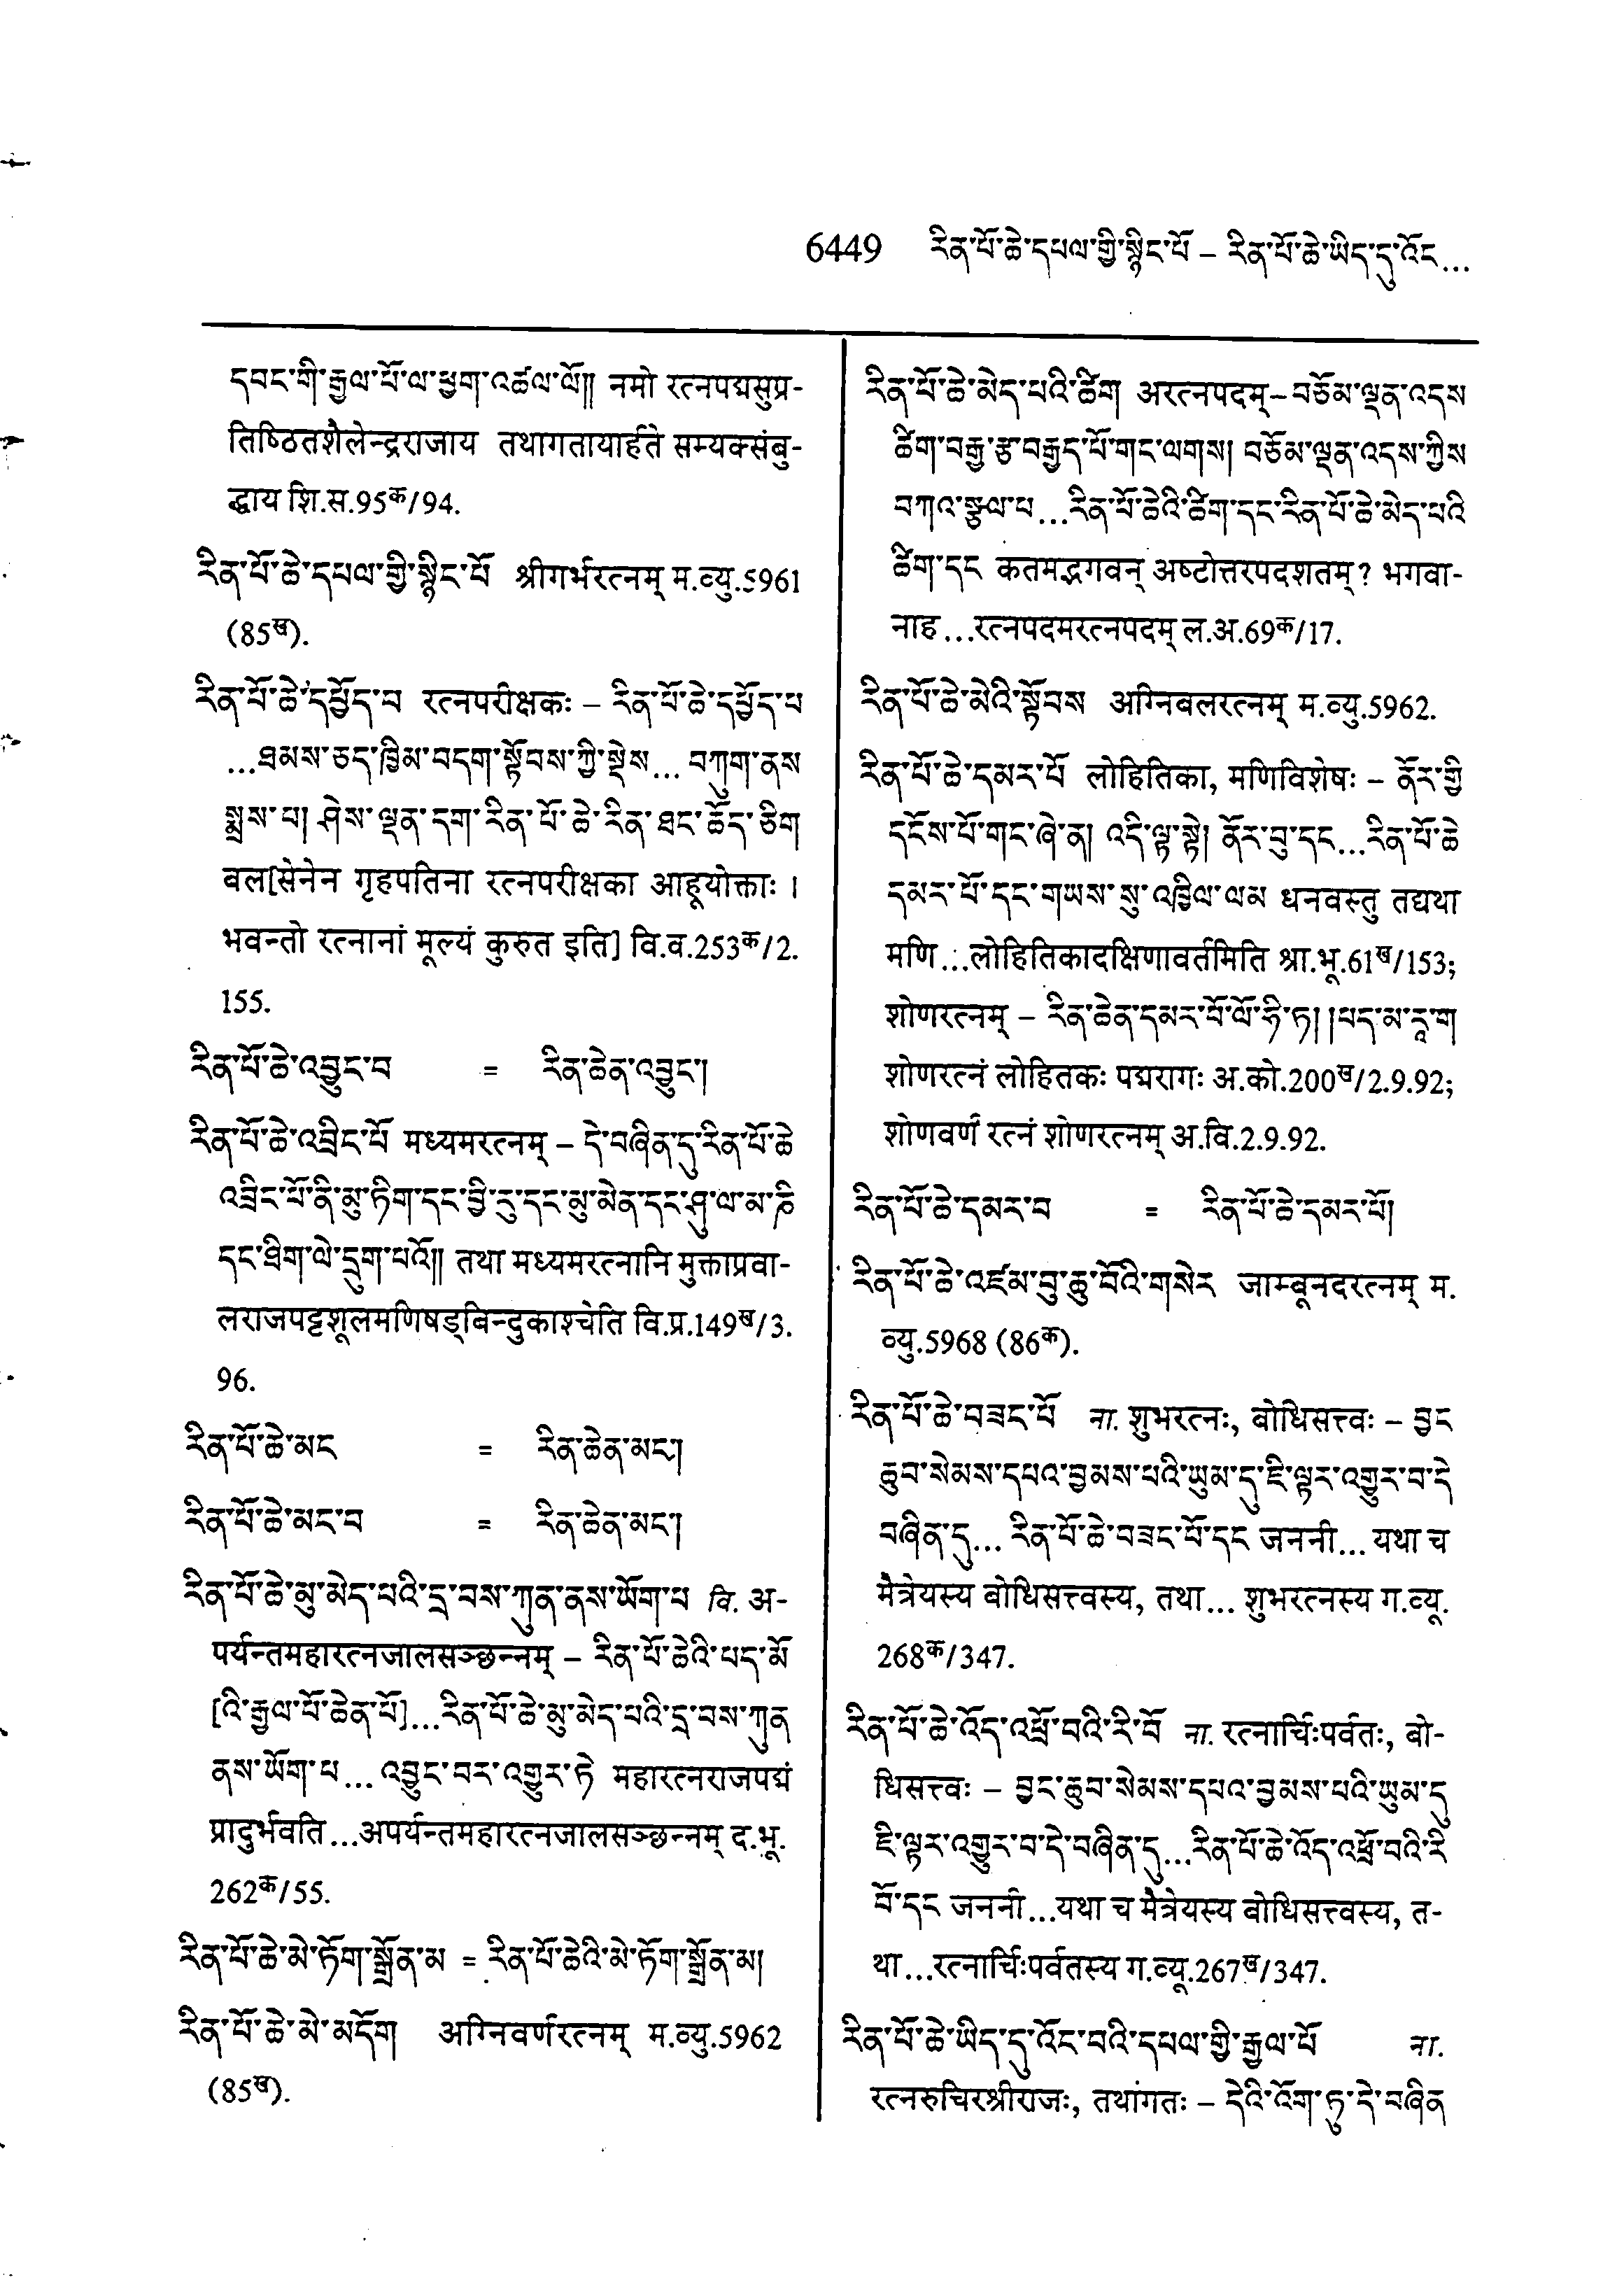 6449 རིན་པོ་ཆེ་དཔལ་གྱི་སྙིང་པོ – རིན་པོ་ཆེ་ཡིད་དུ་འོང...
དབང་གི་རྒྱལ་པོ་ལ་ཕྱག་འཚལ་ལོ།། नमो रत्नपद्मसुप्र-
तिष्ठितशैलेन्द्रराजाय तथागतायार्हते सम्यक्संबु-
द्धाय शि.स.95क/94.
རིན་པོ་ཆེ་དཔལ་གྱི་སྙིང་པོ श्रीगर्भरत्नम् म.व्यु.5961
(85ख).
རིན་པོ་ཆེ་དཔྱོད་པ रत्नपरीक्षकः – རིན་པོ་ཆེ་དཔྱོད་པ
...ཐམས་ཅད་ཁྱིམ་བདག་སྟོབས་ཀྱི་སྡེས... བཀུག་ནས
སྨྲས་པ། ཤེས་ལྡན་དག་རིན་པོ་ཆེ་རིན་ཐང་ཆོད་ཅིག
बल[सेनेन गृहपतिना रत्नपरीक्षका आहूयोक्ताः ।
भवन्तो रत्नानां मूल्यं कुरुत इति] वि.व.253क/2.
155.
རིན་པོ་ཆེ་འབྱུང་བ = རིན་ཆེན་འབྱུང་།
རིན་པོ་ཆེ་འབྲིང་པོ मध्यमरत्नम् – དེ་བཞིན་དུ་རིན་པོ་ཆེ
འབྲིང་པོ་ནི་མུ་ཏིག་དང་བྱི་རུ་དང་མུ་མེན་དང་ཤུ་ལ་མ་ཎི
དང་ཐིག་ལེ་དྲུག་པའོ།། तथा मध्यमरत्नानि मुक्ताप्रवा-
लराजपट्टशूलमणिषड्बिन्दुकाश्चेति वि.प्र.149ख/3.
96.
རིན་པོ་ཆེ་མང = རིན་ཆེན་མང་།
རིན་པོ་ཆེ་མང་བ = རིན་ཆེན་མང་།
རིན་པོ་ཆེ་མུ་མེད་པའི་དྲ་བས་ཀུན་ནས་ཡོག་པ वि. अ-
पर्यन्तमहारत्नजालसञ्छन्नम् – རིན་པོ་ཆེའི་པད་མོ
[འི་རྒྱལ་པོ་ཆེན་པོ]...རིན་པོ་ཆེ་མུ་མེད་པའི་དྲ་བས་ཀུན
ནས་ཡོག་པ... འབྱུང་བར་འགྱུར་ཏེ महारत्नराजपद्मं
प्रादुर्भवति...अपर्यन्तमहारत्नजालसञ्छन्नम् द.भू.
262क/55.
རིན་པོ་ཆེ་མེ་ཏོག་སྒྲོན་མ = རིན་པོ་ཆེའི་མེ་ཏོག་སྒྲོན་མ།
རིན་པོ་ཆེ་མེ་མདོག अग्निवर्णरत्नम् म.व्यु.5962
(85ख).
རིན་པོ་ཆེ་མེད་པའི་ཚིག अरत्नपदम्–བཅོམ་ལྡན་འདས
ཚིག་བརྒྱ་རྩ་བརྒྱད་པོ་གང་ལགས། བཅོམ་ལྡན་འདས་ཀྱིས
བཀའ་སྩལ་པ...རིན་པོ་ཆེའི་ཚིག་དང་རིན་པོ་ཆེ་མེད་པའི
ཚིག་དང कतमद्भगवन् अष्टोत्तरपदशतम्? भगवा-
नाह...रत्नपदमरत्नपदम् ल.अ.69क/17.
རིན་པོ་ཆེ་མེའི་སྟོབས अग्निबलरत्नम् म.व्यु.5962.
རིན་པོ་ཆེ་དམར་པོ लोहितिका, मणिविशेषः – ནོར་གྱི
དངོས་པོ་གང་ཞེ་ན། འདི་ལྟ་སྟེ། ནོར་བུ་དང...རིན་པོ་ཆེ
དམར་པོ་དང་གཡས་སུ་འཁྱིལ་ལམ धनवस्तु तद्यथा
मणि...लोहितिकादक्षिणावर्तमिति श्रा.भू.61ख/153;
शोणरत्नम् – རིན་ཆེན་དམར་པོ་ལོ་ཧི་ཏ། །པད་མ་རཱ་ག
शोणरत्नं लोहितकः पद्मरागः अ.को.200ख/2.9.92;
शोणवर्णं रत्नं शोणरत्नम् अ.वि.2.9.92.
རིན་པོ་ཆེ་དམར་བ = རིན་པོ་ཆེ་དམར་པོ།
རིན་པོ་ཆེ་འཛམ་བུ་ཆུ་བོའི་གསེར जाम्बूनदरत्नम् म.
व्यु.5968 (86क).
རིན་པོ་ཆེ་བཟང་པོ ना. शुभरत्नः, बोधिसत्त्वः – བྱང
ཆུབ་སེམས་དཔའ་བྱམས་པའི་ཡུམ་དུ་ཇི་ལྟར་འགྱུར་བ་དེ
བཞིན་དུ... རིན་པོ་ཆེ་བཟང་པོ་དང जननी... यथा च
मैत्रेयस्य बोधिसत्त्वस्य, तथा... शुभरत्नस्य ग.व्यू.
268क/347.
རིན་པོ་ཆེ་འོད་འཕྲོ་བའི་རི་བོ ना. रत्नार्चिःपर्वतः, बो-
धिसत्त्वः – བྱང་ཆུབ་སེམས་དཔའ་བྱམས་པའི་ཡུམ་དུ
ཇི་ལྟར་འགྱུར་བ་དེ་བཞིན་དུ...རིན་པོ་ཆེ་འོད་འཕྲོ་བའི་རི
བོ་དང जननी...यथा च मैत्रेयस्य बोधिसत्त्वस्य, त-
था...रत्नार्चिःपर्वतस्य ग.व्यू.267ख/347.
རིན་པོ་ཆེ་ཡིད་དུ་འོང་བའི་དཔལ་གྱི་རྒྱལ་པོ ना.
रत्नरुचिरश्रीराजः, तथागतः – དེའི་འོག་ཏུ་དེ་བཞིན